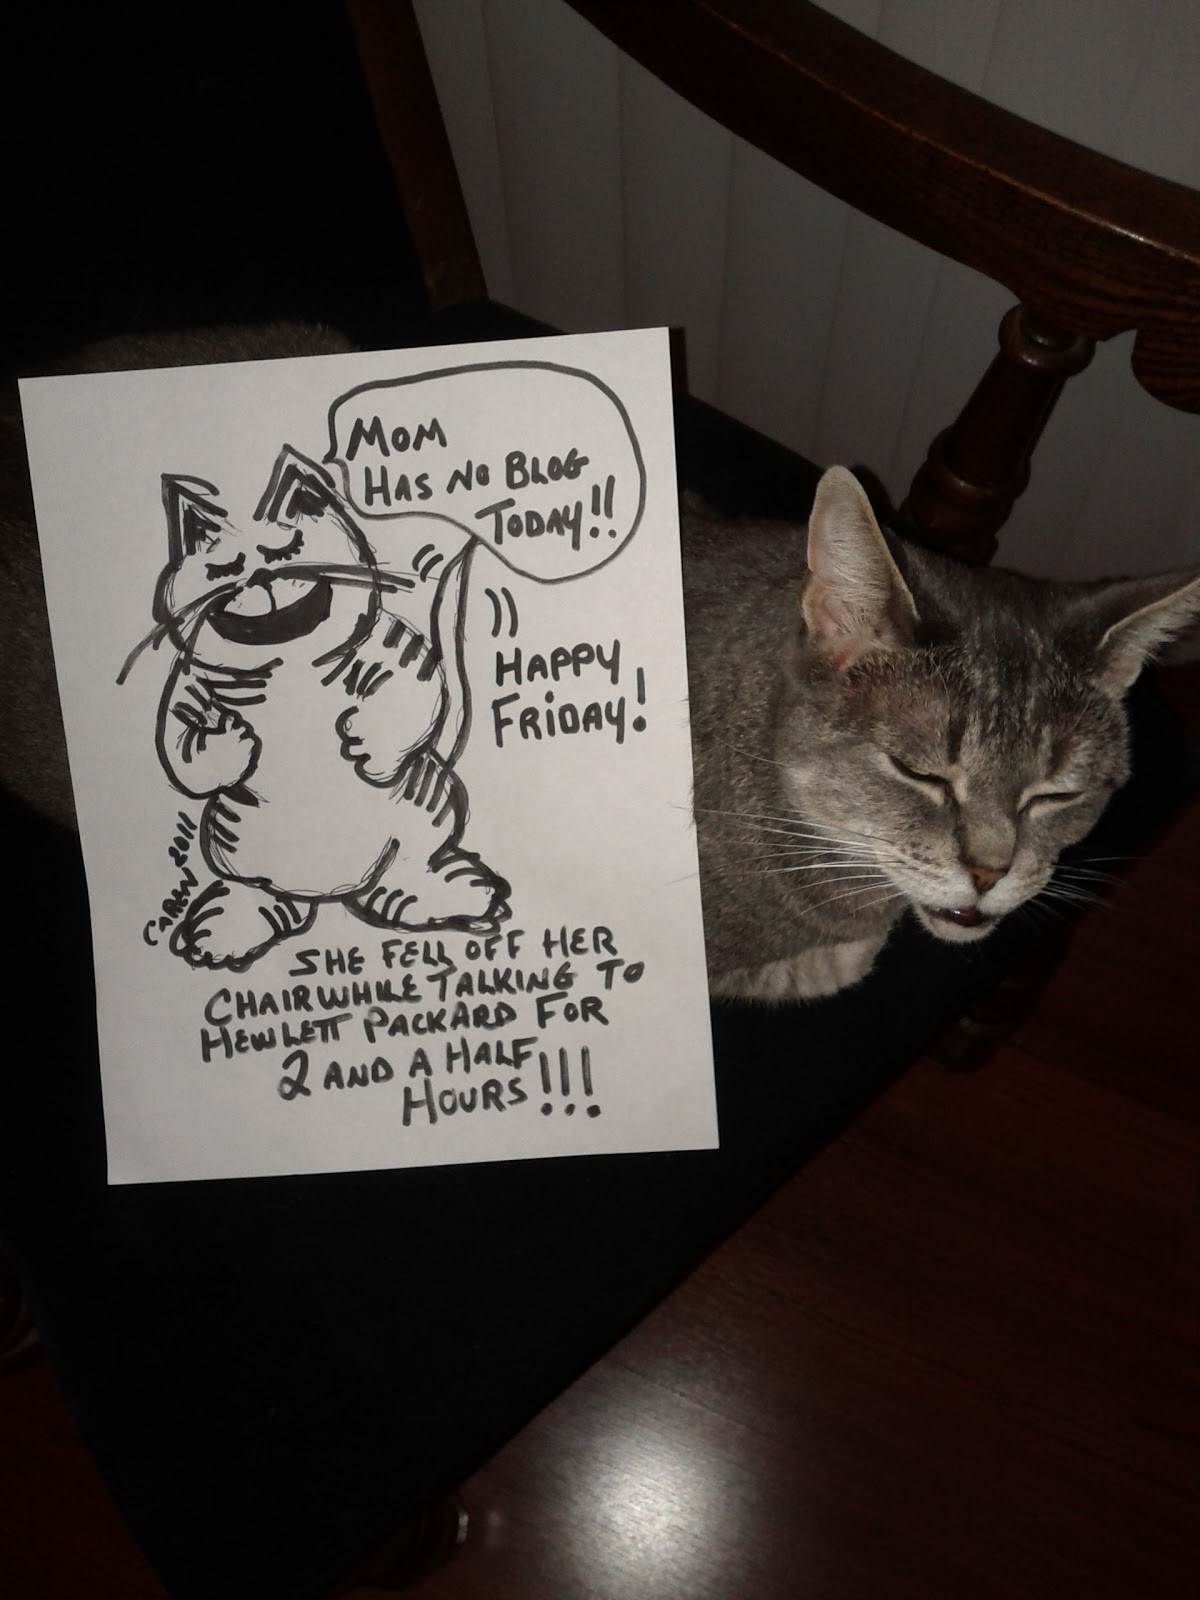 MOM
HAS NO BLOG
TODAY!!
HAPPY
FRIDAY!
CAREN 2011
SHE FELL OFF HER
CHAIR WHILE TALKING TO
HEWLETT PACKARD FOR
2 AND A HALF
HOURS!!!